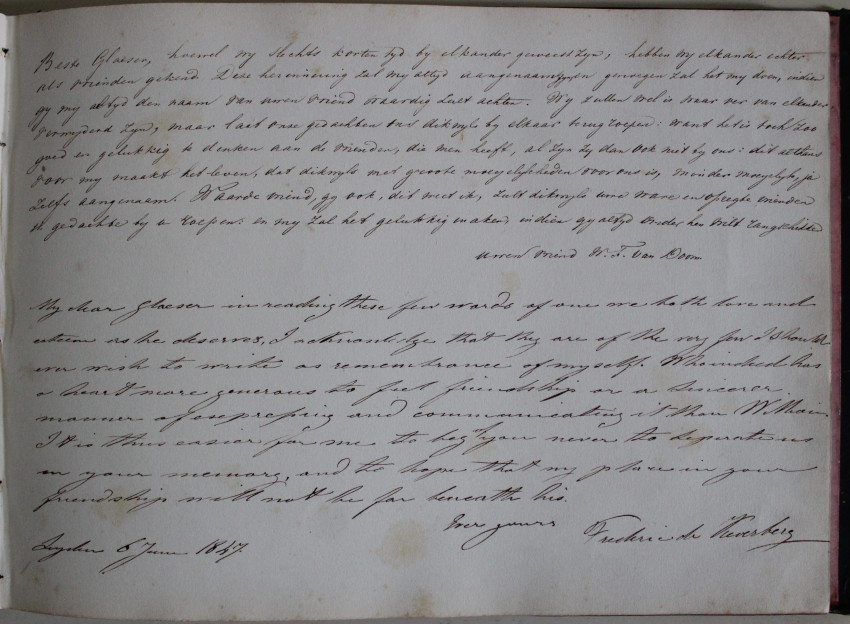 Beste Glaeser, hoewel wy slechts korten tyd by elkander geweest zyn, hebben wy elkander echter
als vrienden gekend. Deze herinnering zal my altyd aangenaam zyn en genoegen zal het my doen, indien
gy my altyd den naam van uwen vriend waardig zult achten. Wy zullen wel is waar ver van elkander
verwyderd zyn, maar laat onze gedachten ons dikwyls by elkaar terug roepen: want het is toch zoo
goed en gelukkig te denken aan de vrienden, die men heeft, al zyn zy dan ook niet by ons: dit althans
voor my maakt het leven, dat dikwyls met groote moeyelykheden voor ons is, minder moeyelyk, ja
zelfs aangenaam. Waarde vriend, gy ook, dit weet ik, zult dikwyls uwe ware en opregte vrienden
in gedachte by u roepen: en my zal het gelukkig maken, indien gy altyd onder hen wilt rangschikken
uwen vriend W. F. van Doorn
My dear Glaeser in reading these few words of one we both love and
esteem as he deserves, I acknowledge that they are of the very few I should
ever wish to write as remembrance of myself. Who indeed has
a heart more generous to feel friendship or a sincerer
manner of expressing and communicating it than William.
It is thus easier for me to beg of you never to seperate us
in your memory, and to hope that my place in your
friendship will not be far beneath his.
Ever yours
Frederic de Keverberg
Leyden 6 June 1847.